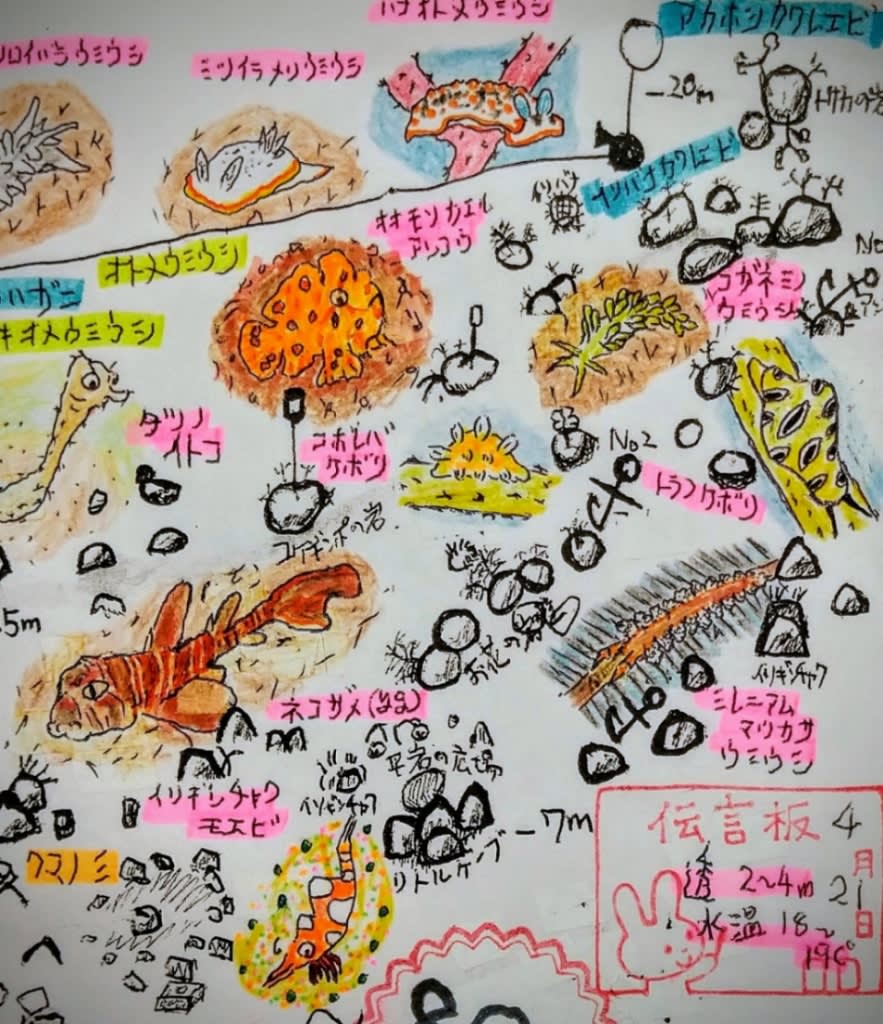 ハナオトメウミウシ
アカホシカクレエビ
シロイバラウミウシ
ミツイラメリウミウシ
-20m
トサカの岩
イソバナカクレエビ
イソバナ
オオモンカエル
アンコウ
オトメウミウシ
コガネミノ
ウミウシ
キオメウミウシ
タツノ
イトコ
コボレバ
ケボリ
No2
トラフケボリ
5m
ネコザメ(幼)
イソギンチャク
ミレニアム
マツカサ
ウミウシ
平岩の広場
イソギンチャク
モエビ
イソギンチャク
-7m
リトルケーブ
クマノミ
伝言板
4月21日
透 2~4m
水温 18~
19℃